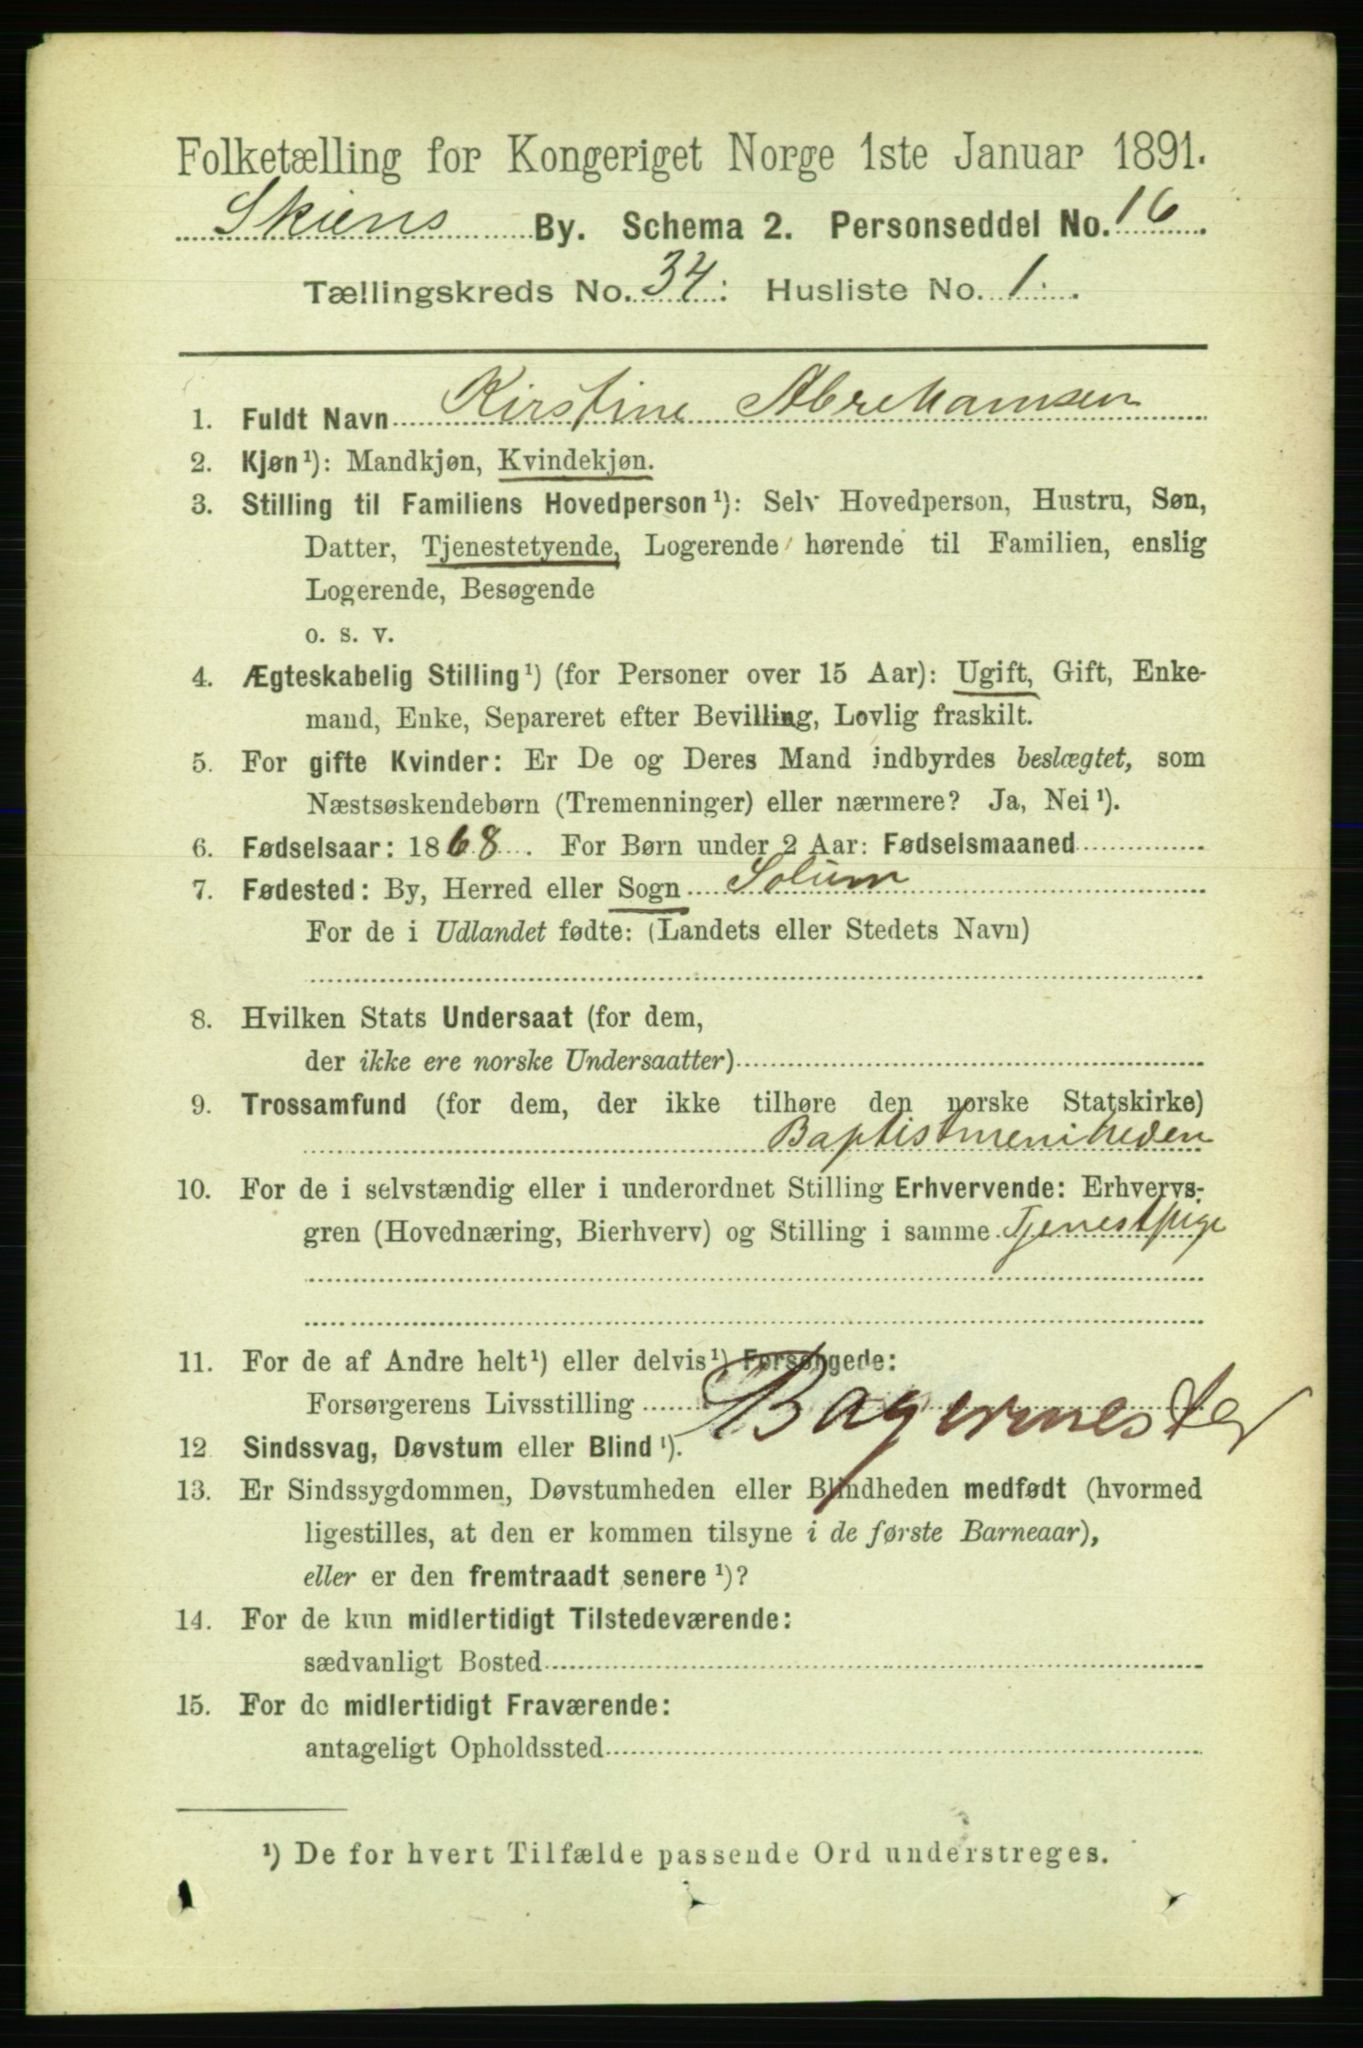 Folketælling for Kongeriget Norge 1ste Januar 1891.
Skiens By. Schema 2. Personseddel No. 16
Tællingskreds No. 34: Husliste No. 1.
1. Fuldt Navn Kirstine Abrehamsen
2. Kjøn¹): Mandkjøn, Kvindekjøn.
3. Stilling til Familiens Hovedperson¹): Selv Hovedperson, Hustru, Søn,
Datter, Tjenestetyende, Logerende hørende til Familien, enslig
Logerende, Besøgende
o. s. v.
4. Ægteskabelig Stilling¹) (for Personer over 15 Aar): Ugift, Gift, Enke-
mand, Enke, Separeret efter Bevilling, Lovlig fraskilt.
5. For gifte Kvinder: Er De og Deres Mand indbyrdes beslægtet, som
Næstsøskendebørn (Tremenninger) eller nærmere? Ja, Nei¹).
6. Fødselsaar: 1868. For Børn under 2 Aar: Fødselsmaaned
7. Fødested: By, Herred eller Sogn Solum
For de i Udlandet fødte: (Landets eller Stedets Navn)
8. Hvilken Stats Undersaat (for dem,
der ikke ere norske Undersaatter)
9. Trossamfund (for dem, der ikke tilhøre den norske Statskirke)
Baptistmeniheden
10. For de i selvstændig eller i underordnet Stilling Erhvervende: Erhvervs-
gren (Hovednæring, Bierhverv) og Stilling i samme Tjenestpige
11. For de af Andre helt¹) eller delvis¹) Forsørgede:
Forsørgerens Livsstilling Bagermester
12 Sindssvag, Døvstum eller Blind¹).
13. Er Sindssygdommen, Døvstumheden eller Blindheden medfødt (hvormed
ligestilles, at den er kommen tilsyne i de første Barneaar),
eller er den fremtraadt senere¹)?
14. For de kun midlertidigt Tilstedeværende:
sædvanligt Bosted
15. For de midlertidigt Fraværende:
antageligt Opholdssted
¹) De for hvert Tilfælde passende Ord understreges.